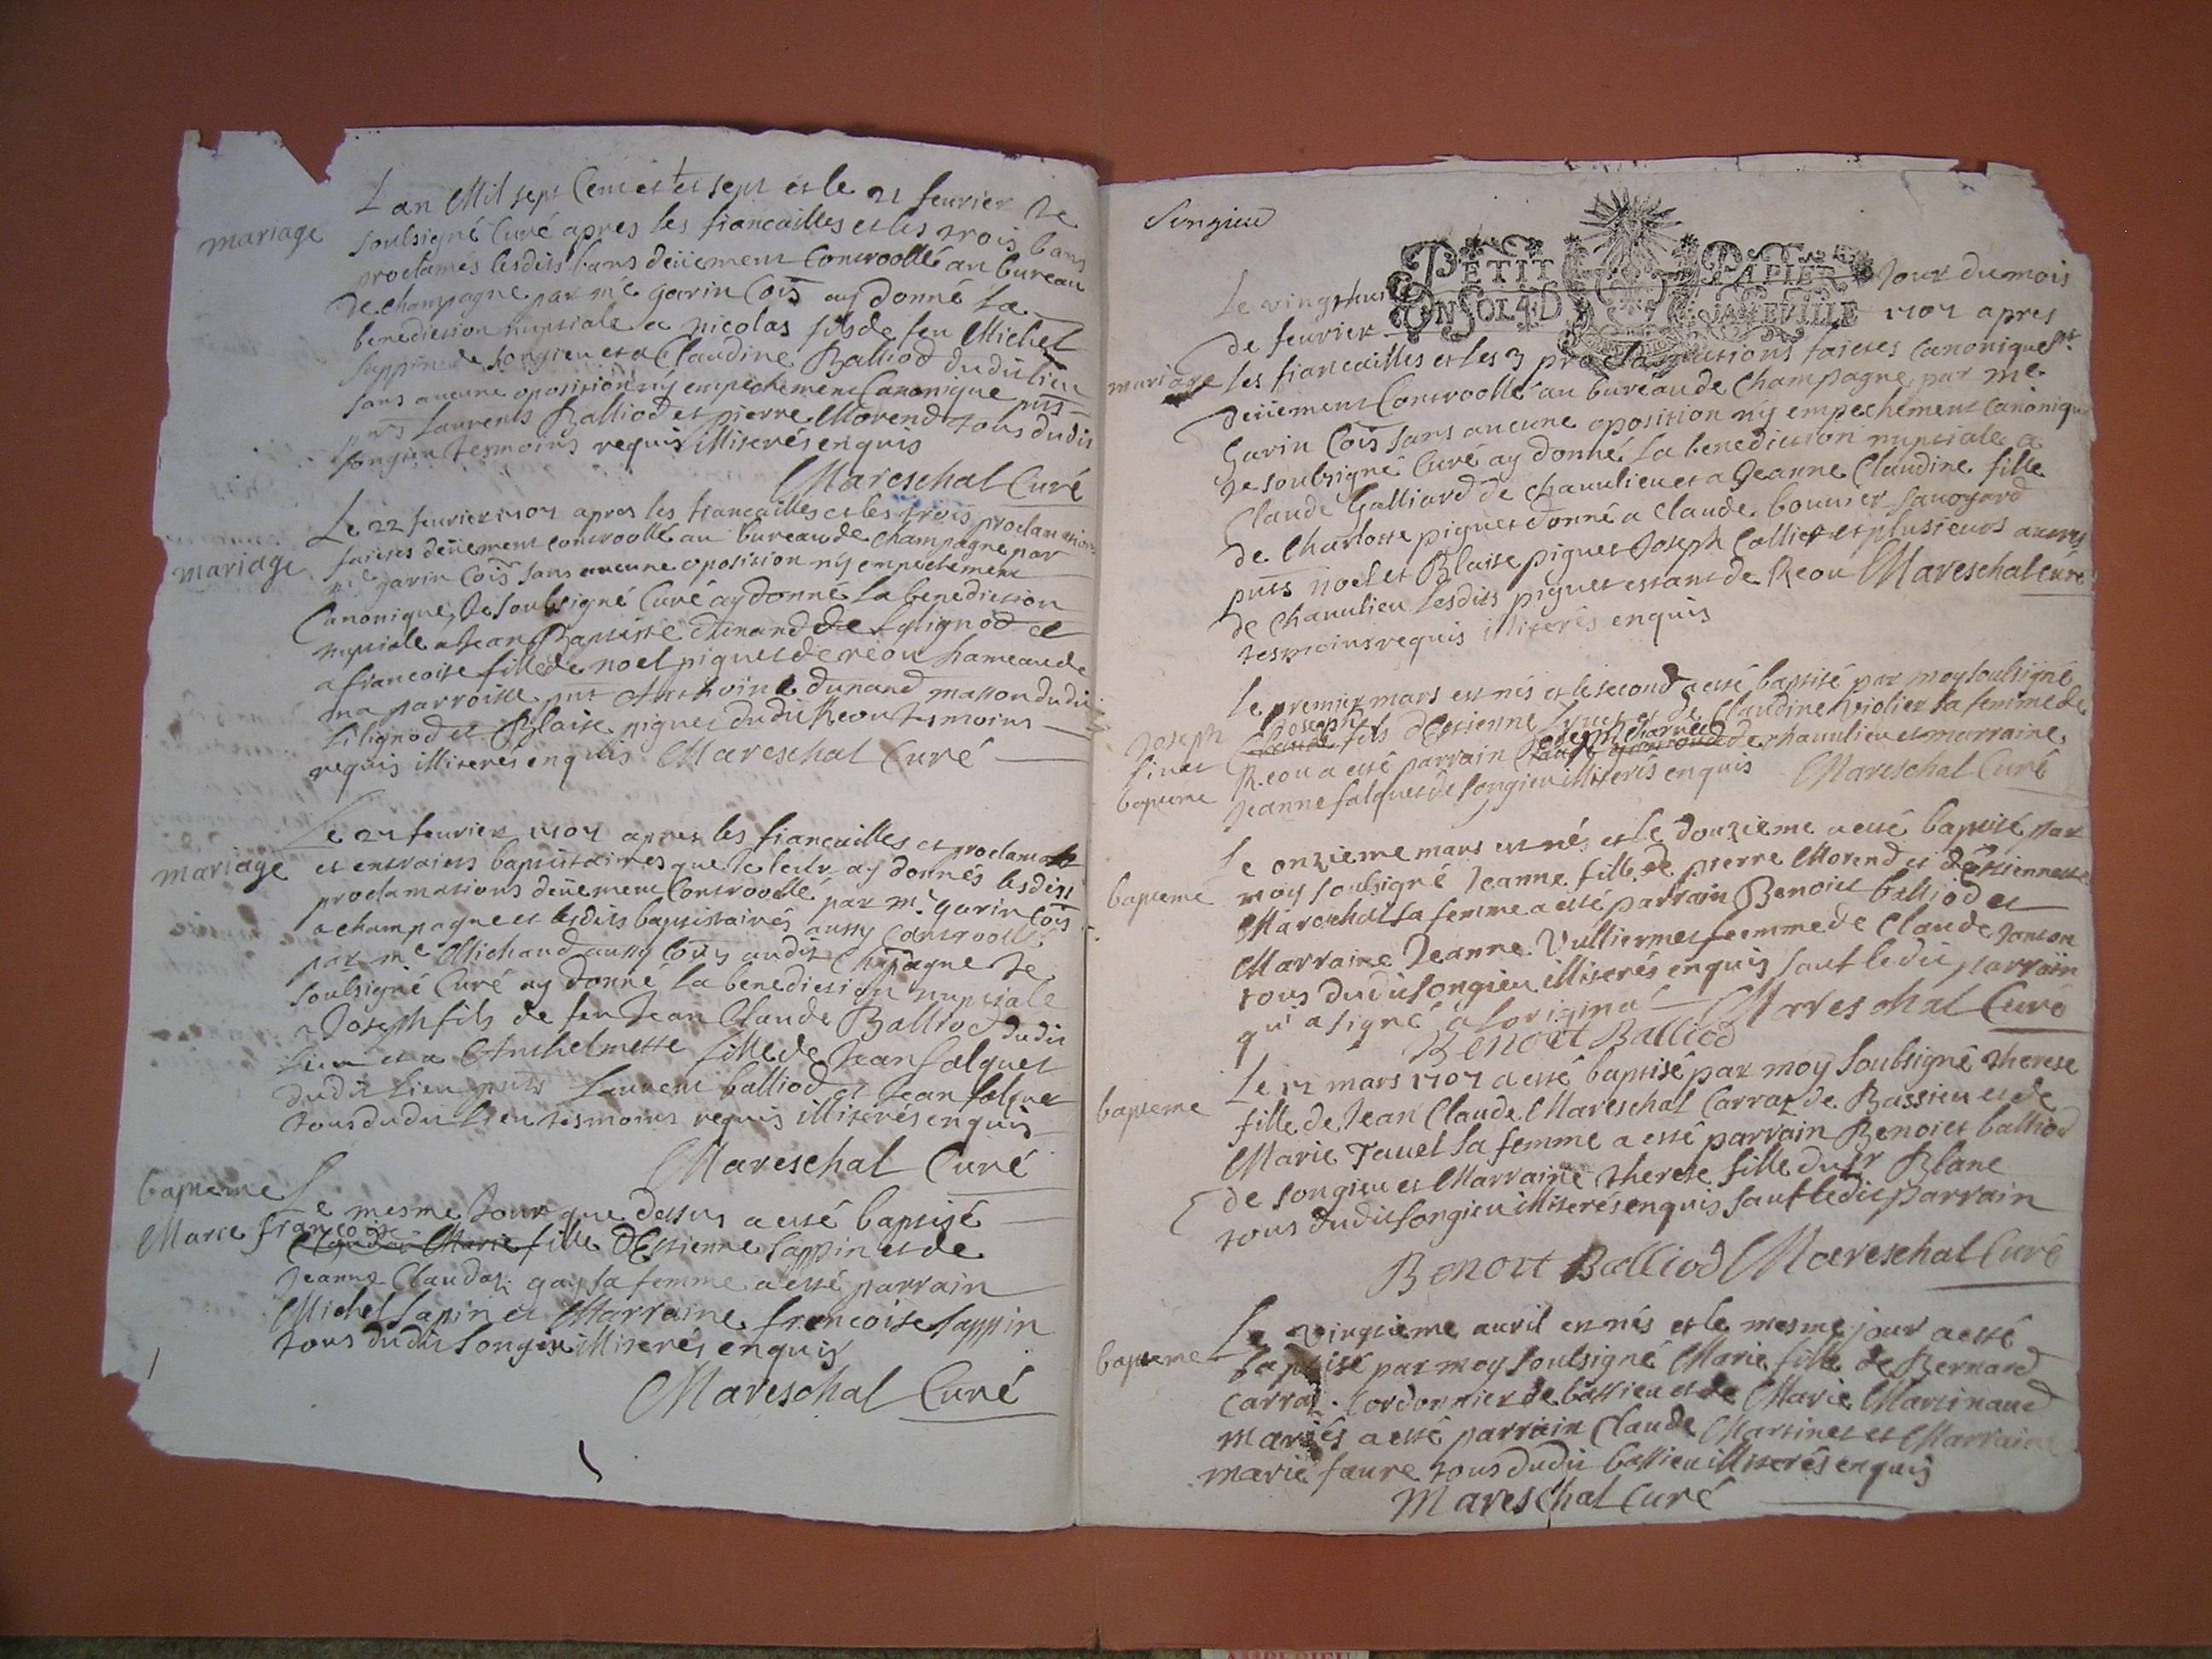 mariage
Lan Mil sept Cent et sept et le 21 feurier Je
soubsigné Curé apres les fiancailles et les trois bans
proclamés lesdits bans deüement Controollé au bureau
de champagne par me garin Cois ay donné La
benediction nuptiale a nicolas fils de feu Michel
sappin de songieu et a Claudine Balliod dudit lieu
sans aucune oposition ny empechement Canonique
Laurents Balliod et pierre Morend tous dudit
songieu tesmoins requis illiterés enquis
Mareschal Curé
mariage
Le 22 feurier 1707 apres les fiancailles et les trois proclamations
faictes deüement controollé au bureau de champagne par
me garin Cois sans aucune oposition ny empechement
Canonique, Je soubsigné Curé ay donné La benediction
nuptiale a Jean Baptiste dunand de Lilignod et
a francoise fille de noel piguet de reou hameau de
ma parroisse pnt Anthoine dunand masson dudit
Lilignod et Blaise piguet dudit Reou tesmoins
requis illiterés enquis Mareschal Curé
mariage
Le 27 feurier 1707 apres les fiancailles et proclamat
et extraicts baptistaires que Je leur ay donnés lesdits
proclamations deüement Controollé par me garin Cois
a champagne et lesdits baptistaires aussy Controollé
par me Michaud aussy Cois audit Chpagne Je
soubsigné Curé ay donné La benediction nuptiale
a Joseph fils de feu Jean Claude Balliod dudit
Lieu et a Anthelmette fille de Jean falquet
dudit Lieu pnts Laurent balliod et Jean falquet
tous dudit Lieu tesmoins requis illiterés enquis
Mareschal Curé
bapteme
Le mesme Jour que dessus a esté baptisé
Marie francoise
Claudaz Marie fille dEstienne Sappin et de
Jeanne Claudaz gay sa femme a esté parrain
Michel Sapin et Marraine francoise Sappin
tous dudit Songieu illiterés enquis
Mareschal Curé
Songieu
PETIT PAPIER
UN SOL 4 D LA FEUILLE
Le vingthui Jour du mois
de feurier 1707 apres
mariage
Les fiancailles et les 3 proclamations faictes canoniquemt
deüement Controollé au bureau de Champagne par me
Garin Cois sans aucune oposition ny empechement Canonique
Je soubsigné Curé ay donné La benediction nuptiale a
Claude Galliard de chaulieu et a Jeanne Claudine fille
de Charlotte piguet donné a Claude bouuier sauoyard
pnts noel et Blaise piguet Joseph Collier et plusieurs autres
de Chauulieu Lesdits piguet estant de Reou Mareschal Curé
tesmoins requis illiterés enquis
Joseph
bapteme
Le premier mars est nés et le second a esté baptisé par moy soubsigné
Joseph
Claude fils dEstienne et de Claudine Violier sa femme de
Reou a esté parrain Joseph de chauulieu et marraine
Jeanne falquet de songieu illiterés enquis Mareschal Curé
bapteme
Le onzieme mars est nés et le douzieme a esté baptisé par
moy soubsigné Jeanne fille de pierre Morend et dEstiennette
Mareschal sa femme a esté parrain Benoict balliod et
Marraine Jeanne Vulliermet femme de Claude Janton
tous dudit songieu illiterés enquis sauf ledit parrain
qui a signé a loriginal Mareschal Curé
Benoit Balliod
bapteme
Le 17 mars 1707 a esté baptisé par moy soubsigné therese
fille de Jean Claude Mareschal Carraz de Bassieu et de
Marie Tauel sa femme a esté parrain Benoict balliod
de songieu et Marraine therese fille du sr Blanc
tous dudit songieu illiterés enquis sauf ledit parrain
Benoit Balliod Mareschal Curé
bapteme
Le vingtieme auril est nés et le mesme jour a esté
baptisé par moy soubsigné Marie fille de Bernard
Carraz Cordonnier de bassieu et de Marie Martinaud
mariés a esté parrain Claude Martinet et Marraine
marie faure tous dudit bassieu illiterés enquis
Mareschal Curé